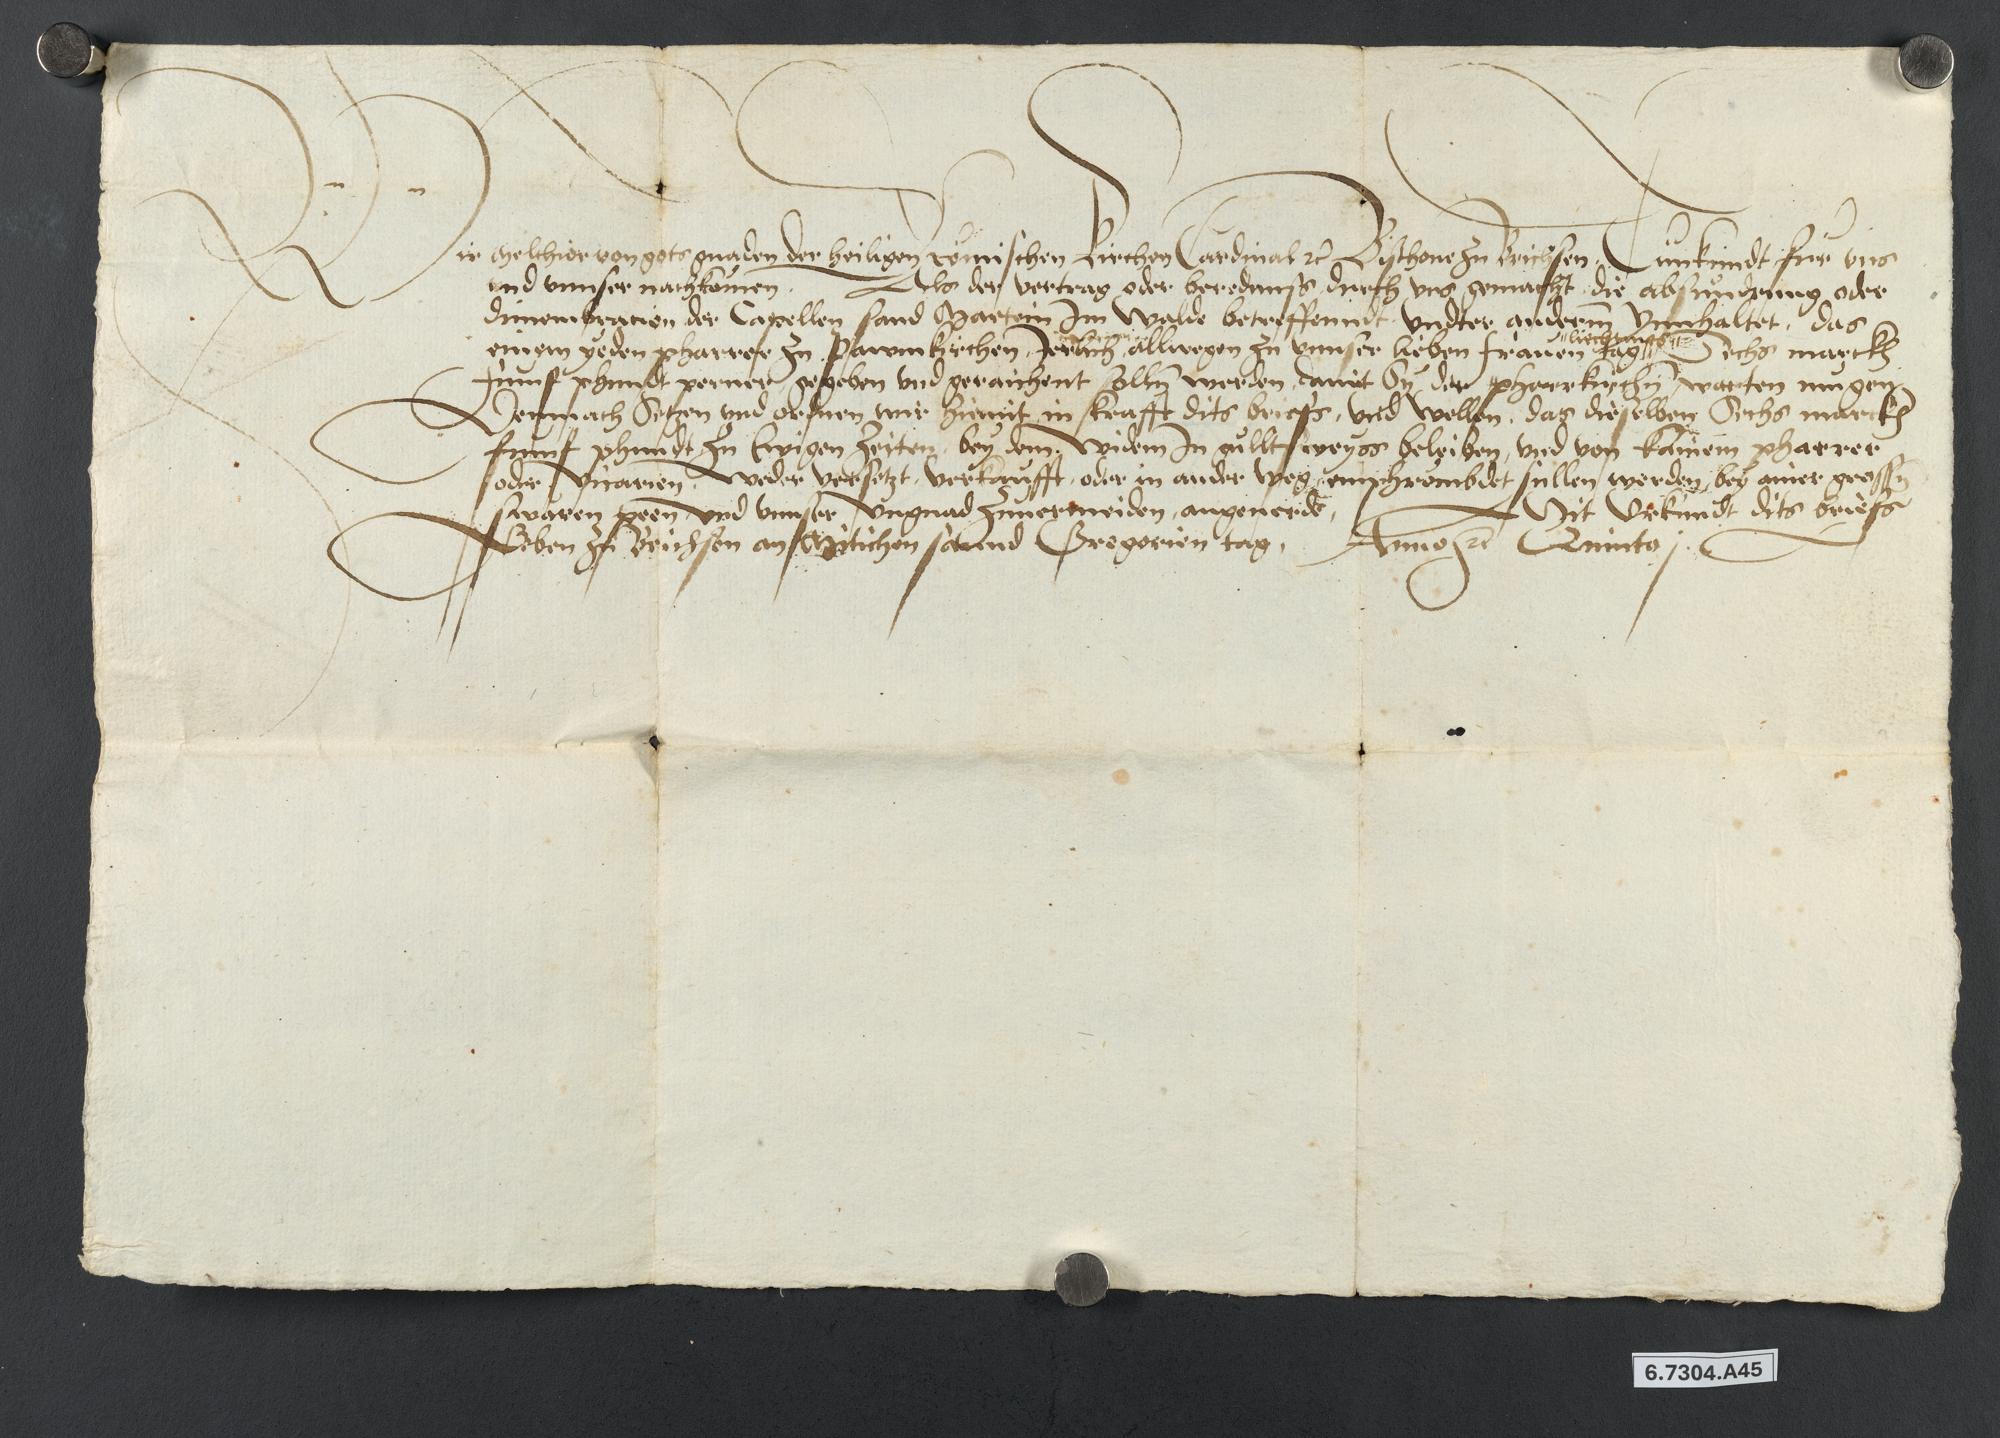 Wir Melchior von gots gnaden der heiligen Römischen Kirchen Cardinal ⁊c Bisthoue zu Brichsen. Tun kundt für vns
vnd vnnser nachkomen. Als der vertrag oder beredunss durch vns gemacht die absündrung oder
dimembracion der Capellen sand Martein Im Walde betreffenndt vndter anderm Innhaltet, das
einem yeden pharrer zu Pawmkirchen Jerlich allwegen zu vnnser lieben frawen liechtmess tag Sechs marckh
funnf phundt perner gegeben vnd geraichent solln werden, damit Sy der pharrkirchn warten mugen.
Demnach Setzen vnd ordnen wir hiemit in krafft dits briefs, vnd wellen, das dieselben Sechs marckh
funnf phundt zu Ewigen zeiten bey dem Widem In gulltweyss beleiben, vnd von kainem pharrer
oder Vicarien, weder versetzt, verkaufft, oder in ander weg emphrömbdet sullen werden, bey ainer grossn
swaren peen vnd vnnser Vngnad zuuermeiden, angeuerde, Mit Vrkundt dits briefs
Geben zu Brichsen an Mitichen sannd Gregorien tag, Anno ⁊c Quinto
6.7304.A45